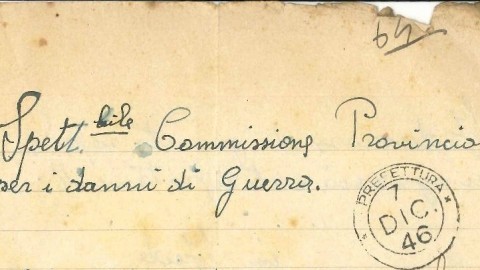 64
Spett.bile Commissione Provincia
per i danni di Guerra.
PREFETTURA
7
DIC.
46